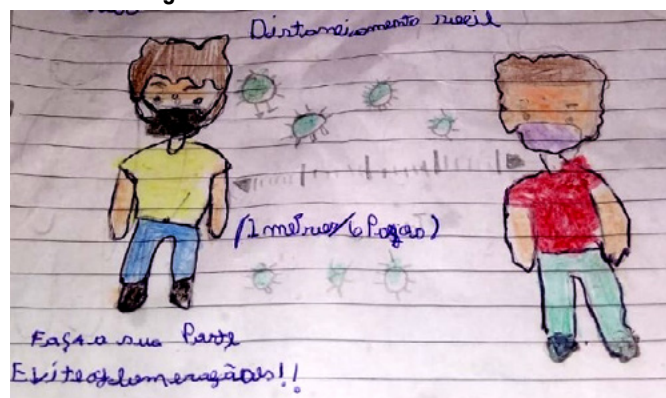 Distanciamento social
(2 metros/6
Faça a sua Parte
Evite aglomerações!!